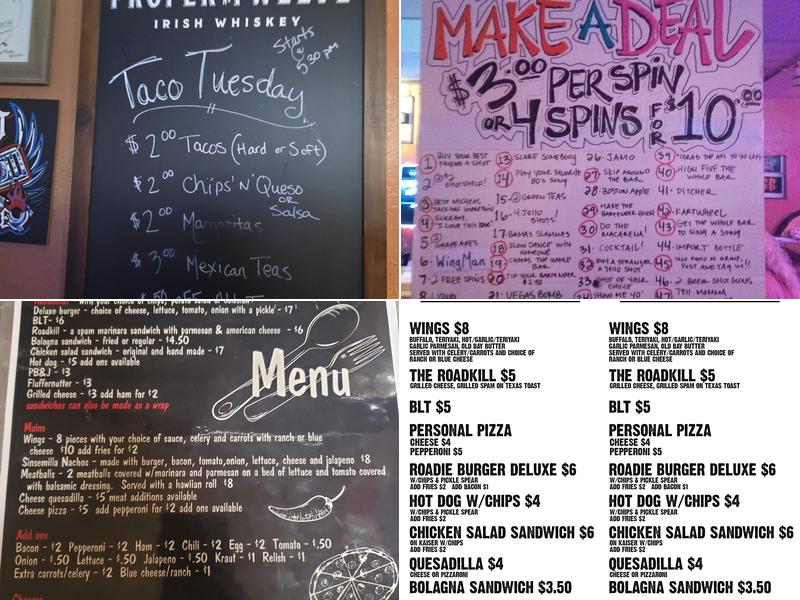 IRISH WHISKEY
Starts
@
5:30 pm
Taco Tuesday
$2.00 Tacos (Hard or Soft)
$2.00 Chips 'N' Queso
OR
Salsa
$2.00 Margaritas
$3.00 Mexican Teas
MAKE A DEAL
$3.00 PER SPIN
OR 4 SPINS FOR $10.00
1 BUY YOUR BEST
FRIEND A SHOT
2
SHOTSKI!
3 BEST MICHEAL
JACKSON IMPRESSION
4 SCREAM,
I LOVE THIS BAR
5 GRAPE APES
6- WINGMAN
7- 2 FREE SPINS
13 SCARE SOMEBODY
14 PLAY YOUR FAVORITE
80'S SONG
15- 2 GREEN TEAS
16- 4 JELLO
SHOTS!
17 BAMA SLAMMAS
18 SLOW DANCE WITH
SOMEONE
19 CHEERS THE WHOLE
BAR
20 TIP YOUR BARTENDER
21- VEGAS BOMB
26- JAMO
27- SKIP AROUND
THE BAR
28- BOSTON APPLE
29 MAKE THE
BARTENDER BLUSH
30 DO THE
MACARENA!
31- COCKTAIL!
32 BUY A STRANGER
A JELLO SHOT
33 SHOT OF YOUR
CHOICE
34 SHOW ME YO'
39
40 HIGH FIVE THE
WHOLE BAR
41- PITCHER
42- KARTWHEEL
43 GET THE WHOLE BAR
TO SING A SONG
44- IMPORT BOTTLE
45 TAKE PHOTO IN GROUP,
POST AND TAG US!!
46- 2 BEER SHOTGUNS
47 TELL MOMMA
Deluxe burger - choice of cheese, lettuce, tomato, onion with a pickle - $7
BLT- $6
Roadkill - a spam marinara sandwich with parmesan & american cheese - $6
Bologna sandwich - fried or regular - $4.50
Chicken salad sandwich - original and hand made - $7
Hot dog - $5 add ons available
PB&J - $3
Fluffernutter - $3
Grilled cheese - $3 add ham for $2
sandwiches can also be made as a wrap
Menu
Mains
Wings - 8 pieces with your choice of sauce, celery and carrots with ranch or blue
cheese $10 add fries for $2
Sinsemilla Nachos - made with burger, bacon, tomato,onion, lettuce, cheese and jalapeno $8
Meatballs - 2 meatballs covered w/marinara and parmesan on a bed of lettuce and tomato covered
with balsamic dressing. Served with a hawiian roll $8
Cheese quesadilla - $5 meat additions available
Cheese pizza - $5 add pepperoni for $2 add ons available
Add ons
Bacon - $2 Pepperoni - $2 Ham - $2 Chili - $2 Egg - $2 Tomato - $.50
Onion - $.50 Lettuce - $.50 Jalapeno - $.50 Kraut - $1 Relish - $1
Extra carrots/celery - $2 Blue cheese/ranch - $1
WINGS $8
BUFFALO, TERIYAKI, HOT/GARLIC/TERIYAKI
GARLIC PARMESAN, OLD BAY BUTTER
SERVED WITH CELERY/CARROTS AND CHOICE OF
RANCH OR BLUE CHEESE
THE ROADKILL $5
GRILLED CHEESE, GRILLED SPAM ON TEXAS TOAST
BLT $5
PERSONAL PIZZA
CHEESE $4
PEPPERONI $5
ROADIE BURGER DELUXE $6
W/CHIPS & PICKLE SPEAR
ADD FRIES $2 ADD BACON $1
HOT DOG W/CHIPS $4
W/CHIPS & PICKLE SPEAR
ADD FRIES $2
CHICKEN SALAD SANDWICH $6
ON KAISER W/CHIPS
ADD FRIES $2
QUESADILLA $4
CHEESE OR PIZZARONI
BOLAGNA SANDWICH $3.50
WINGS $8
BUFFALO, TERIYAKI, HOT/GARLIC/TERIYAKI
GARLIC PARMESAN, OLD BAY BUTTER
SERVED WITH CELERY/CARROTS AND CHOICE OF
RANCH OR BLUE CHEESE
THE ROADKILL $5
GRILLED CHEESE, GRILLED SPAM ON TEXAS TOAST
BLT $5
PERSONAL PIZZA
CHEESE $4
PEPPERONI $5
ROADIE BURGER DELUXE $6
W/CHIPS & PICKLE SPEAR
ADD FRIES $2 ADD BACON $1
HOT DOG W/CHIPS $4
W/CHIPS & PICKLE SPEAR
ADD FRIES $2
CHICKEN SALAD SANDWICH $6
ON KAISER W/CHIPS
ADD FRIES $2
QUESADILLA $4
CHEESE OR PIZZARONI
BOLAGNA SANDWICH $3.50